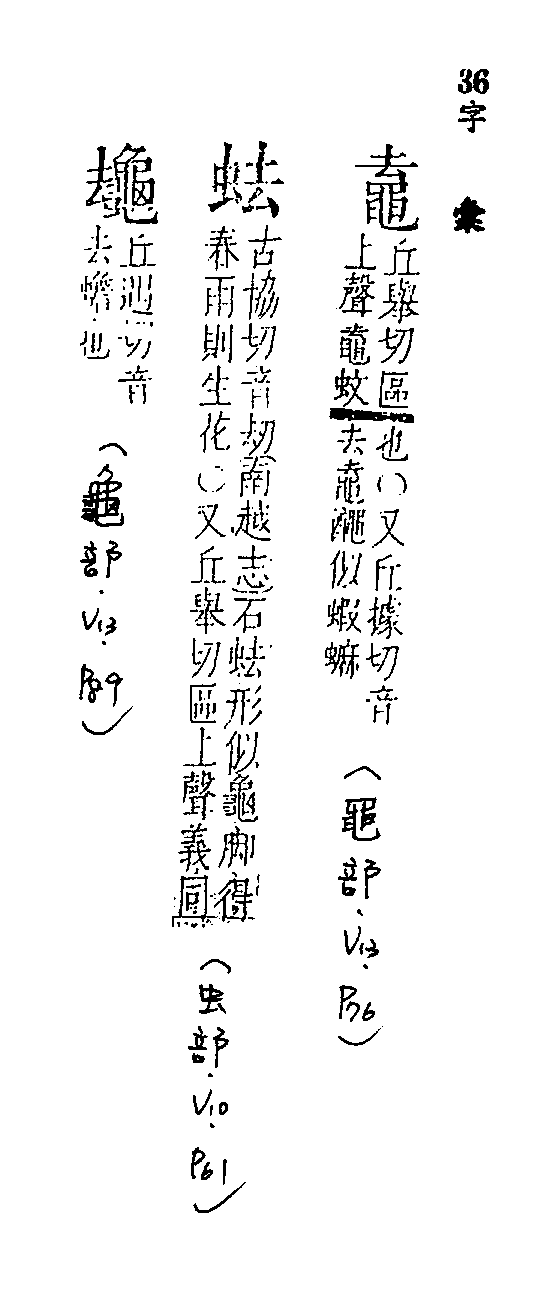 36
字 彙
𪓰
丘舉切區
上聲鼀蚊
也〇又丘據切音
去𪓰䵷似蝦蟆
(黽部.V13.P76)
蚨
古協切音劫南越志石蚨形似龜脚得
春雨則生花〇又丘舉切區上聲義同
(虫部.V10.P61)
丘遇切音
去蟾也
(龜部.V13.P89)